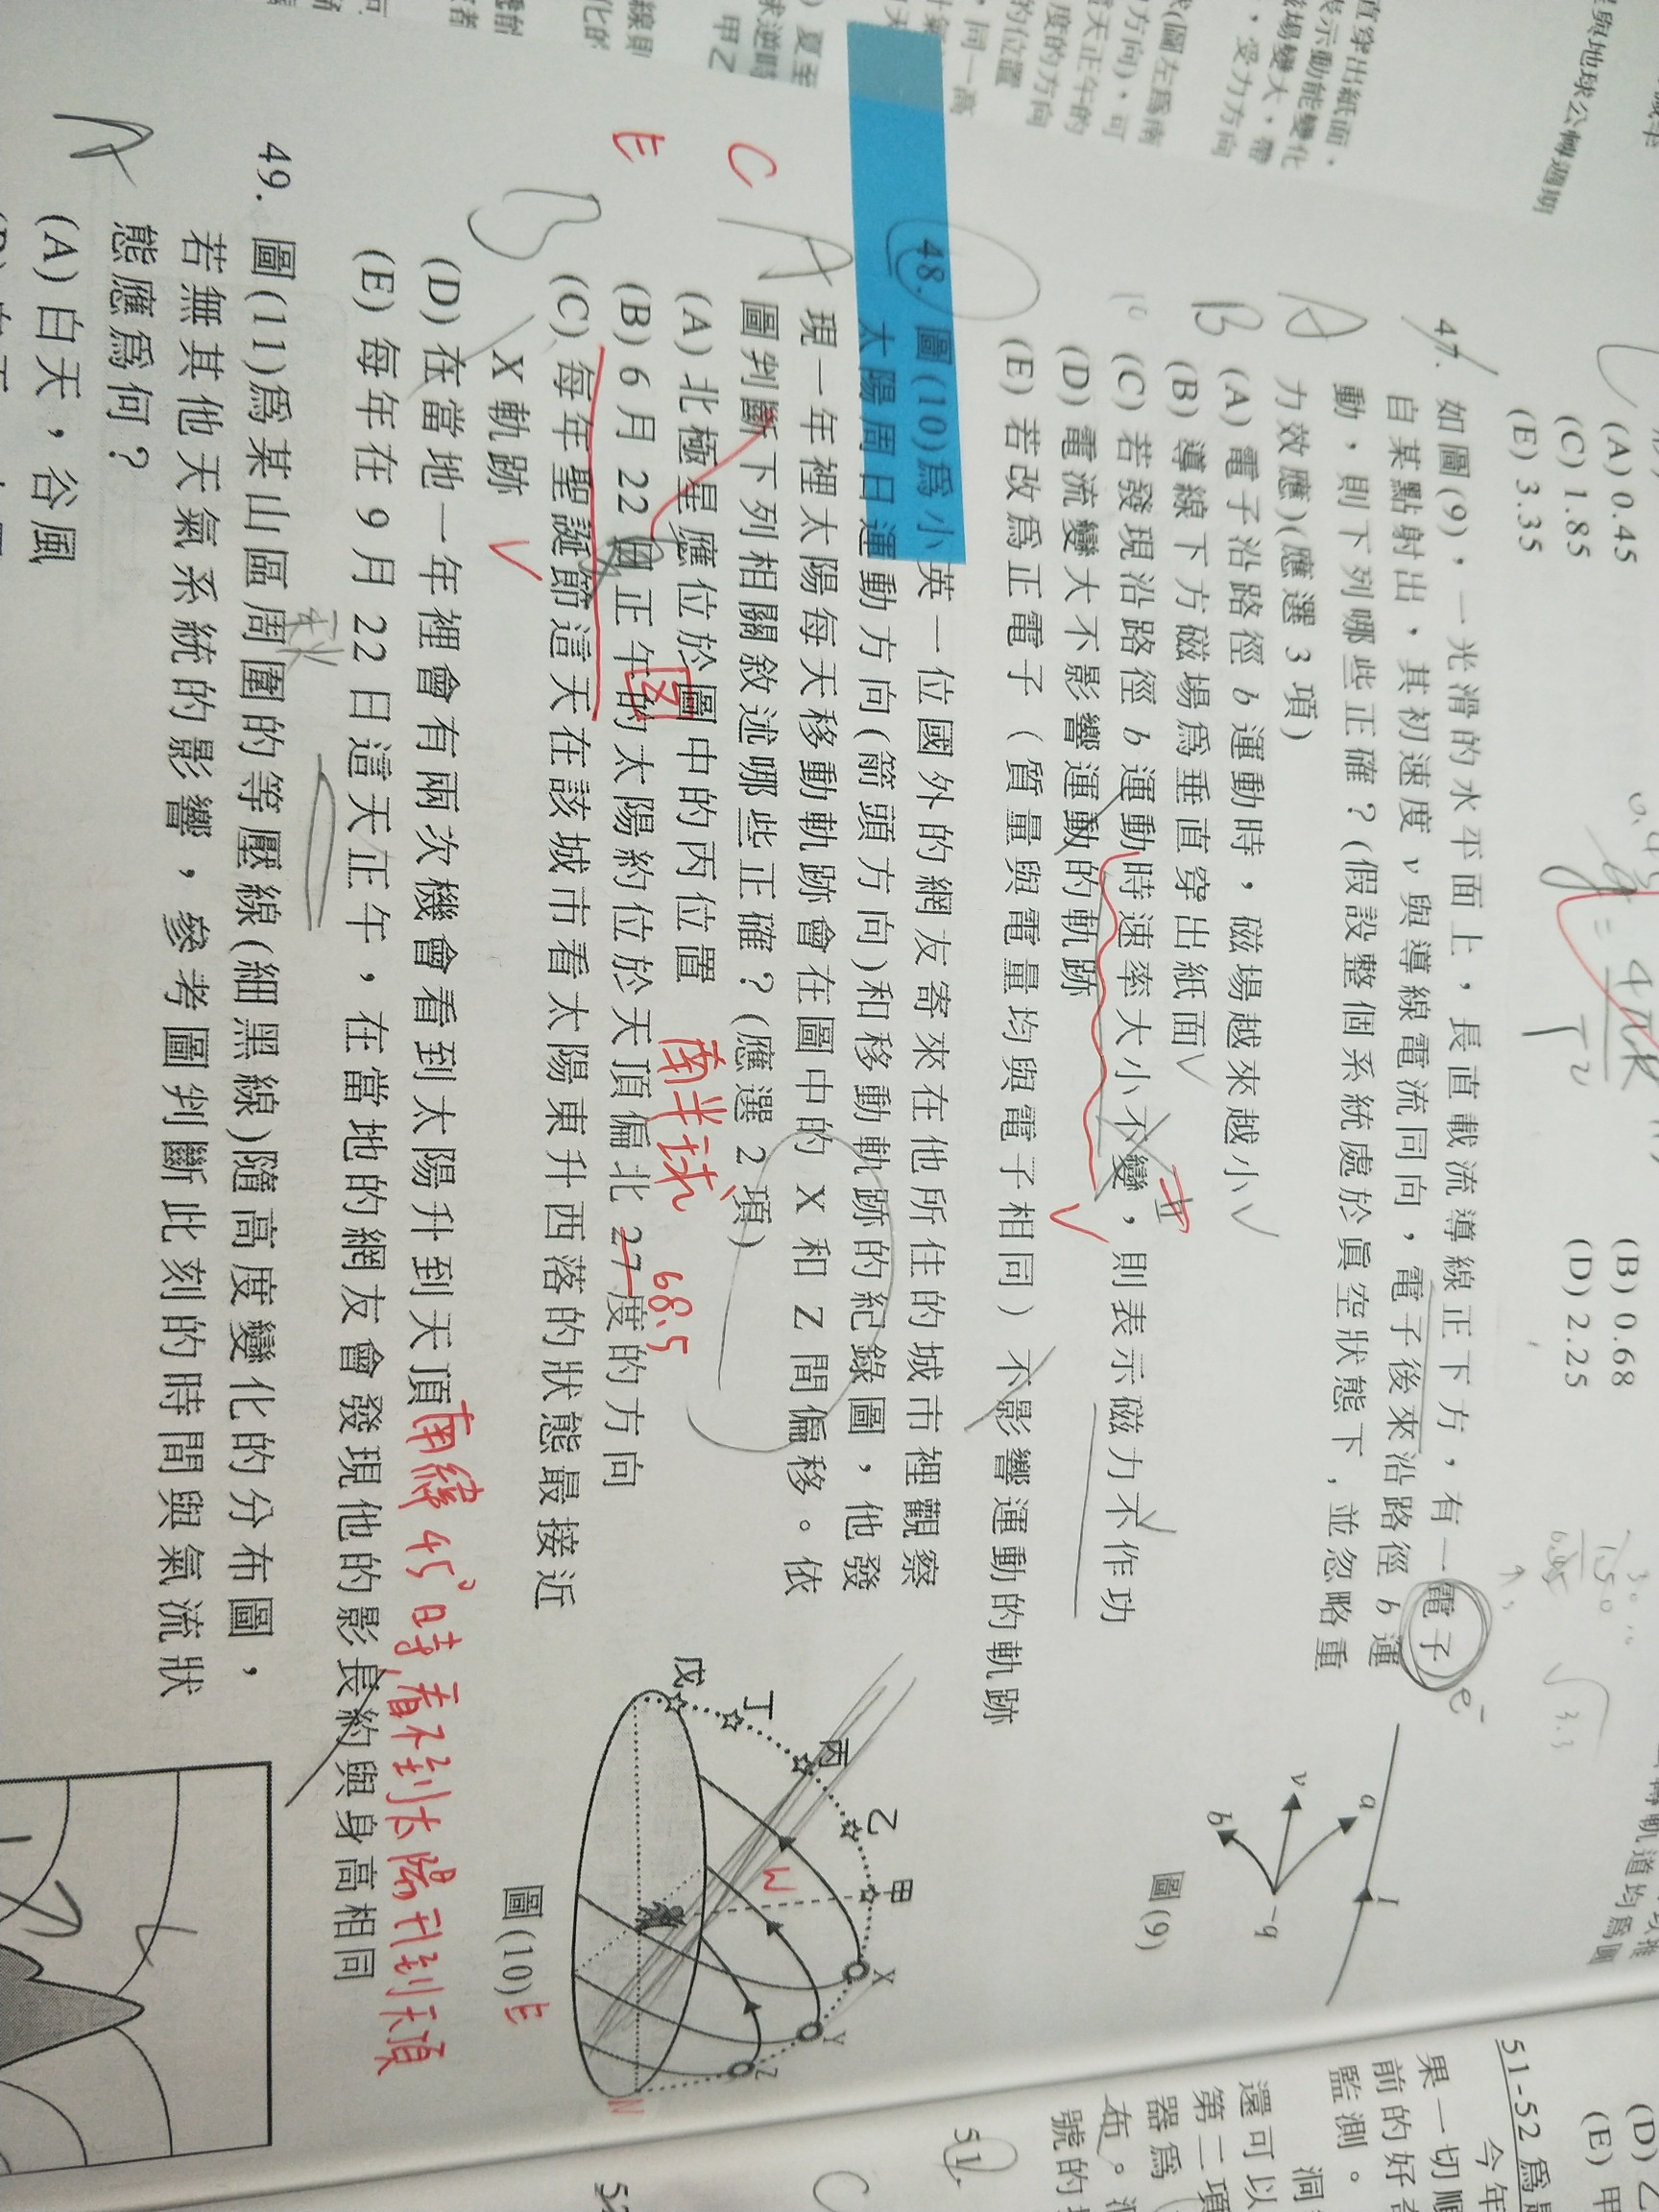 與地球公轉週期
直穿出紙面,
表示動能變化
場變大,帶
,受力方向
(圖左為南
方向),可
天正午的
度的方向
的位置
,同一高
夏至
求逆時
甲乙
(A) 0.45
(B) 0.68
(C) 1.85
(D) 2.25
(E) 3.35
47. 如圖(9),一光滑的水平面上,長直載流導線正下方,有一電子 e⁻
自某點射出,其初速度 v 與導線電流同向,電子後來沿路徑 b 運
動,則下列哪些正確?(假設整個系統處於真空狀態下,並忽略重
力效應)(應選 3 項)
(A) 電子沿路徑 b 運動時,磁場越來越小
(B) 導線下方磁場為垂直穿出紙面
(C) 若發現沿路徑 b 運動時速率大小不變,則表示磁力不作功
(D) 電流變大不影響運動的軌跡
(E) 若改為正電子(質量與電量均與電子相同)不影響運動的軌跡
I
a
v
b
-q
圖(9)
48. 圖(10)為小英一位國外的網友寄來在他所住的城市裡觀察
太陽周日運動方向(箭頭方向)和移動軌跡的紀錄圖,他發
現一年裡太陽每天移動軌跡會在圖中的 X 和 Z 間偏移。依
圖判斷下列相關敘述哪些正確?(應選 2 項)
(A) 北極星應位於圖中的丙位置
南半球
(B) 6 月 22 日正午的太陽約位於天頂偏北 27 度的方向
68.5
(C) 每年聖誕節這天在該城市看太陽東升西落的狀態最接近
X 軌跡
(D) 在當地一年裡會有兩次機會看到太陽升到天頂
南緯 45° 時,看不到太陽升到天頂
(E) 每年在 9 月 22 日這天正午,在當地的網友會發現他的影長約與身高相同
C
E
A
B
甲
乙
丙
丁
戊
X
Y
Z
W
N
E
圖(10)
49. 圖(11)為某山區周圍的等壓線(細黑線)隨高度變化的分布圖,
若無其他天氣系統的影響,參考圖判斷此刻的時間與氣流狀
態應為何?
(A) 白天,谷風
A
(D) 乙
(E) 甲
51-52 為
今年
果一切順
前的好奇
監測。
洞
還可以
第二項
器為
布。
號的
51.